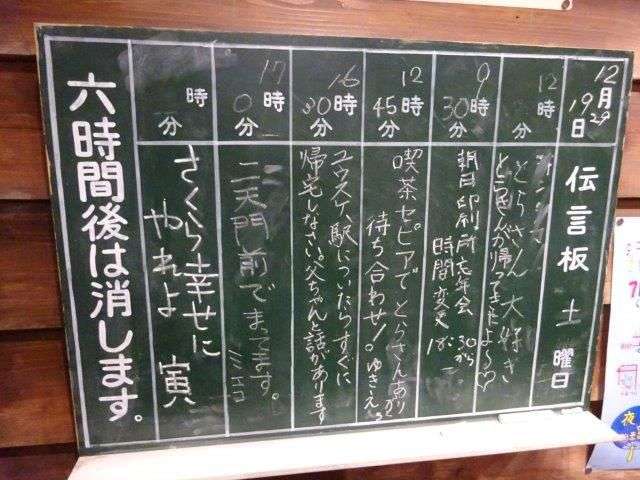 12月19日
29
伝言板 土曜日
12時
とらさん大好き
とらさんが帰ってきたよ〜♡
9時30分
朝日印刷所忘年会 30から
時間変更 18:
12時45分
喫茶セピアでとらさんあり
待ち合わせ! ゆきえ
16時30分
ユウスケ、駅についたらすぐに
帰宅しなさい。父ちゃんと話があります
17時0分
二天門前でまってます。ミエコ
時 分
さくら幸せに
やれよ 寅
六時間後は消します。